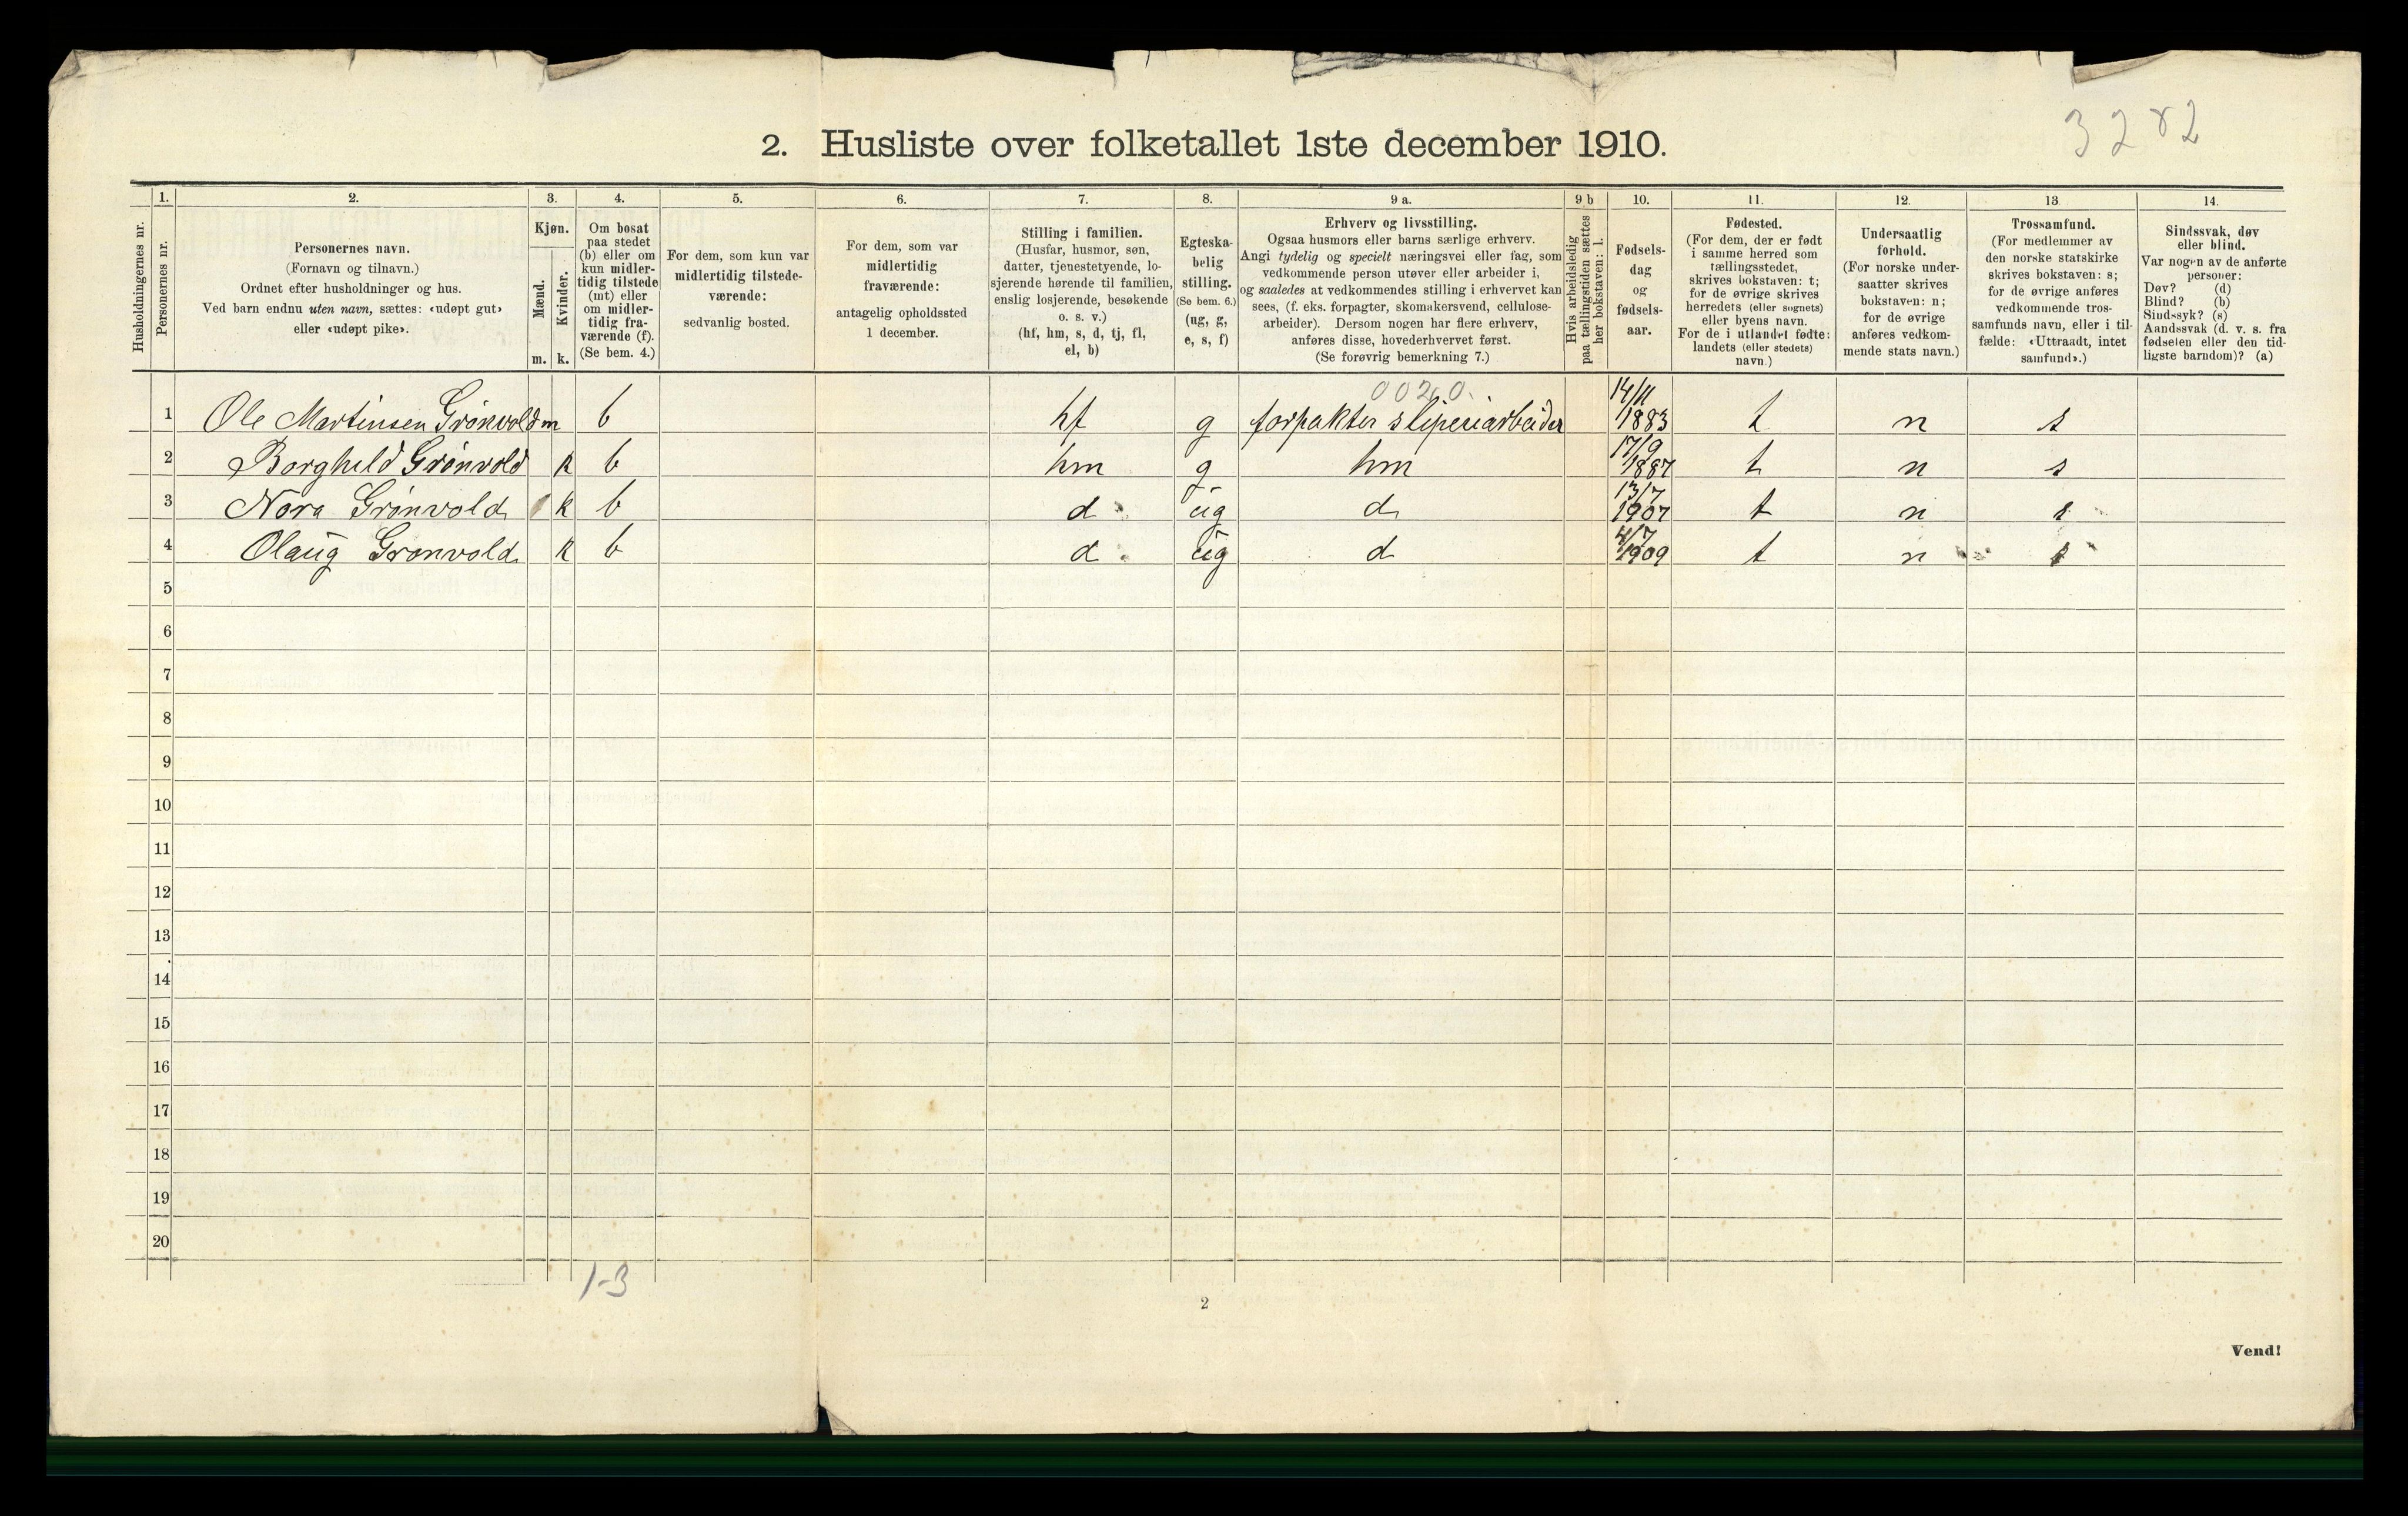 3282
2. Husliste over folketallet 1ste december 1910.
Husholdningernes nr.
1.
Personernes nr.
2.
Personernes navn.
(Fornavn og tilnavn.)
Ordnet efter husholdninger og hus.
Ved barn endnu uten navn, sættes: «udøpt gut»
eller «udøpt pike».
3.
Kjøn.
Mænd.
Kvinder.
m. k.
4.
Om bosat
paa stedet
(b) eller om
kun midler-
tidig tilstede
(mt) eller
om midler-
tidig fra-
værende (f).
(Se bem. 4.)
5.
For dem, som kun var
midlertidig tilstede-
værende:
sedvanlig bosted.
6.
For dem, som var
midlertidig
fraværende:
antagelig opholdssted
1 december.
7.
Stilling i familien.
(Husfar, husmor, søn,
datter, tjenestetyende, lo-
sjerende hørende til familien,
enslig losjerende, besøkende
o. s. v.)
(hf, hm, s, d, tj, fl,
el, b)
8.
Egteska-
belig
stilling.
(Se bem. 6.)
(ug, g,
e, s, f)
9 a.
Erhverv og livsstilling.
Ogsaa husmors eller barns særlige erhverv.
Angi tydelig og specielt næringsvei eller fag, som
vedkommende person utøver eller arbeider i,
og saaledes at vedkommendes stilling i erhvervet kan
sees, (f. eks. forpagter, skomakersvend, cellulose-
arbeider). Dersom nogen har flere erhverv,
anføres disse, hovederhvervet først.
(Se forøvrig bemerkning 7.)
9 b
Hvis arbeidsledig
paa tællingstiden sættes
her bokstaven: l.
10.
Fødsels-
dag
og
fødsels-
aar.
11.
Fødested.
(For dem, der er født
i samme herred som
tællingsstedet,
skrives bokstaven: t;
for de øvrige skrives
herredets (eller sognets)
eller byens navn.
For de i utlandet fødte:
landets (eller stedets)
navn.)
12.
Undersaatlig
forhold.
(For norske under-
saatter skrives
bokstaven: n;
for de øvrige
anføres vedkom-
mende stats navn.)
13.
Trossamfund.
(For medlemmer av
den norske statskirke
skrives bokstaven: s;
for de øvrige anføres
vedkommende tros-
samfunds navn, eller i til-
fælde: «Uttraadt, intet
samfund».)
14.
Sindssvak, døv
eller blind.
Var nogen av de anførte
personer:
Døv? (d)
Blind? (b)
Sindssyk? (s)
Aandssvak (d. v. s. fra
fødselen eller den tid-
ligste barndom)? (a)
0020.
1 Ole Martinsen Grønvold m b hf g forpakter sliperiarbeider 14/11 1883 t n s
2 Borghild Grønvold k b hm g hm 17/9 1887 t n s
3 Nora Grønvold k b d ug d 13/7 1907 t n s
4 Olaug Grønvold k b d ug d 4/7 1909 t n s
5
6
7
8
9
10
11
12
13
14
15
16
17
18
19
20
1-3
2
Vend!